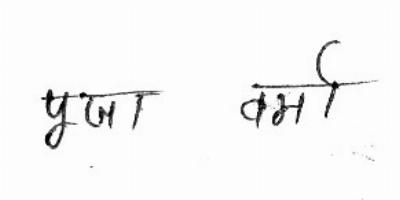 पूजा वर्मा